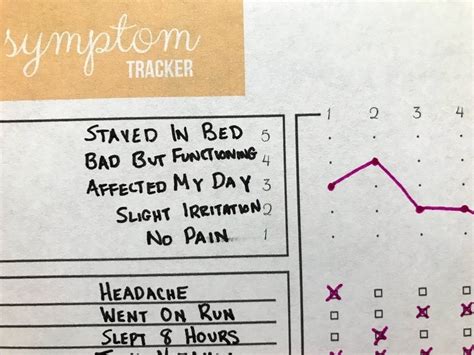 symptom
TRACKER
1 2 3 4
STAYED IN BED 5
BAD BUT FUNCTIONING 4
AFFECTED MY DAY 3
SLIGHT IRRITATION 2
NO PAIN 1
HEADACHE
WENT ON RUN
SLEPT 8 HOURS